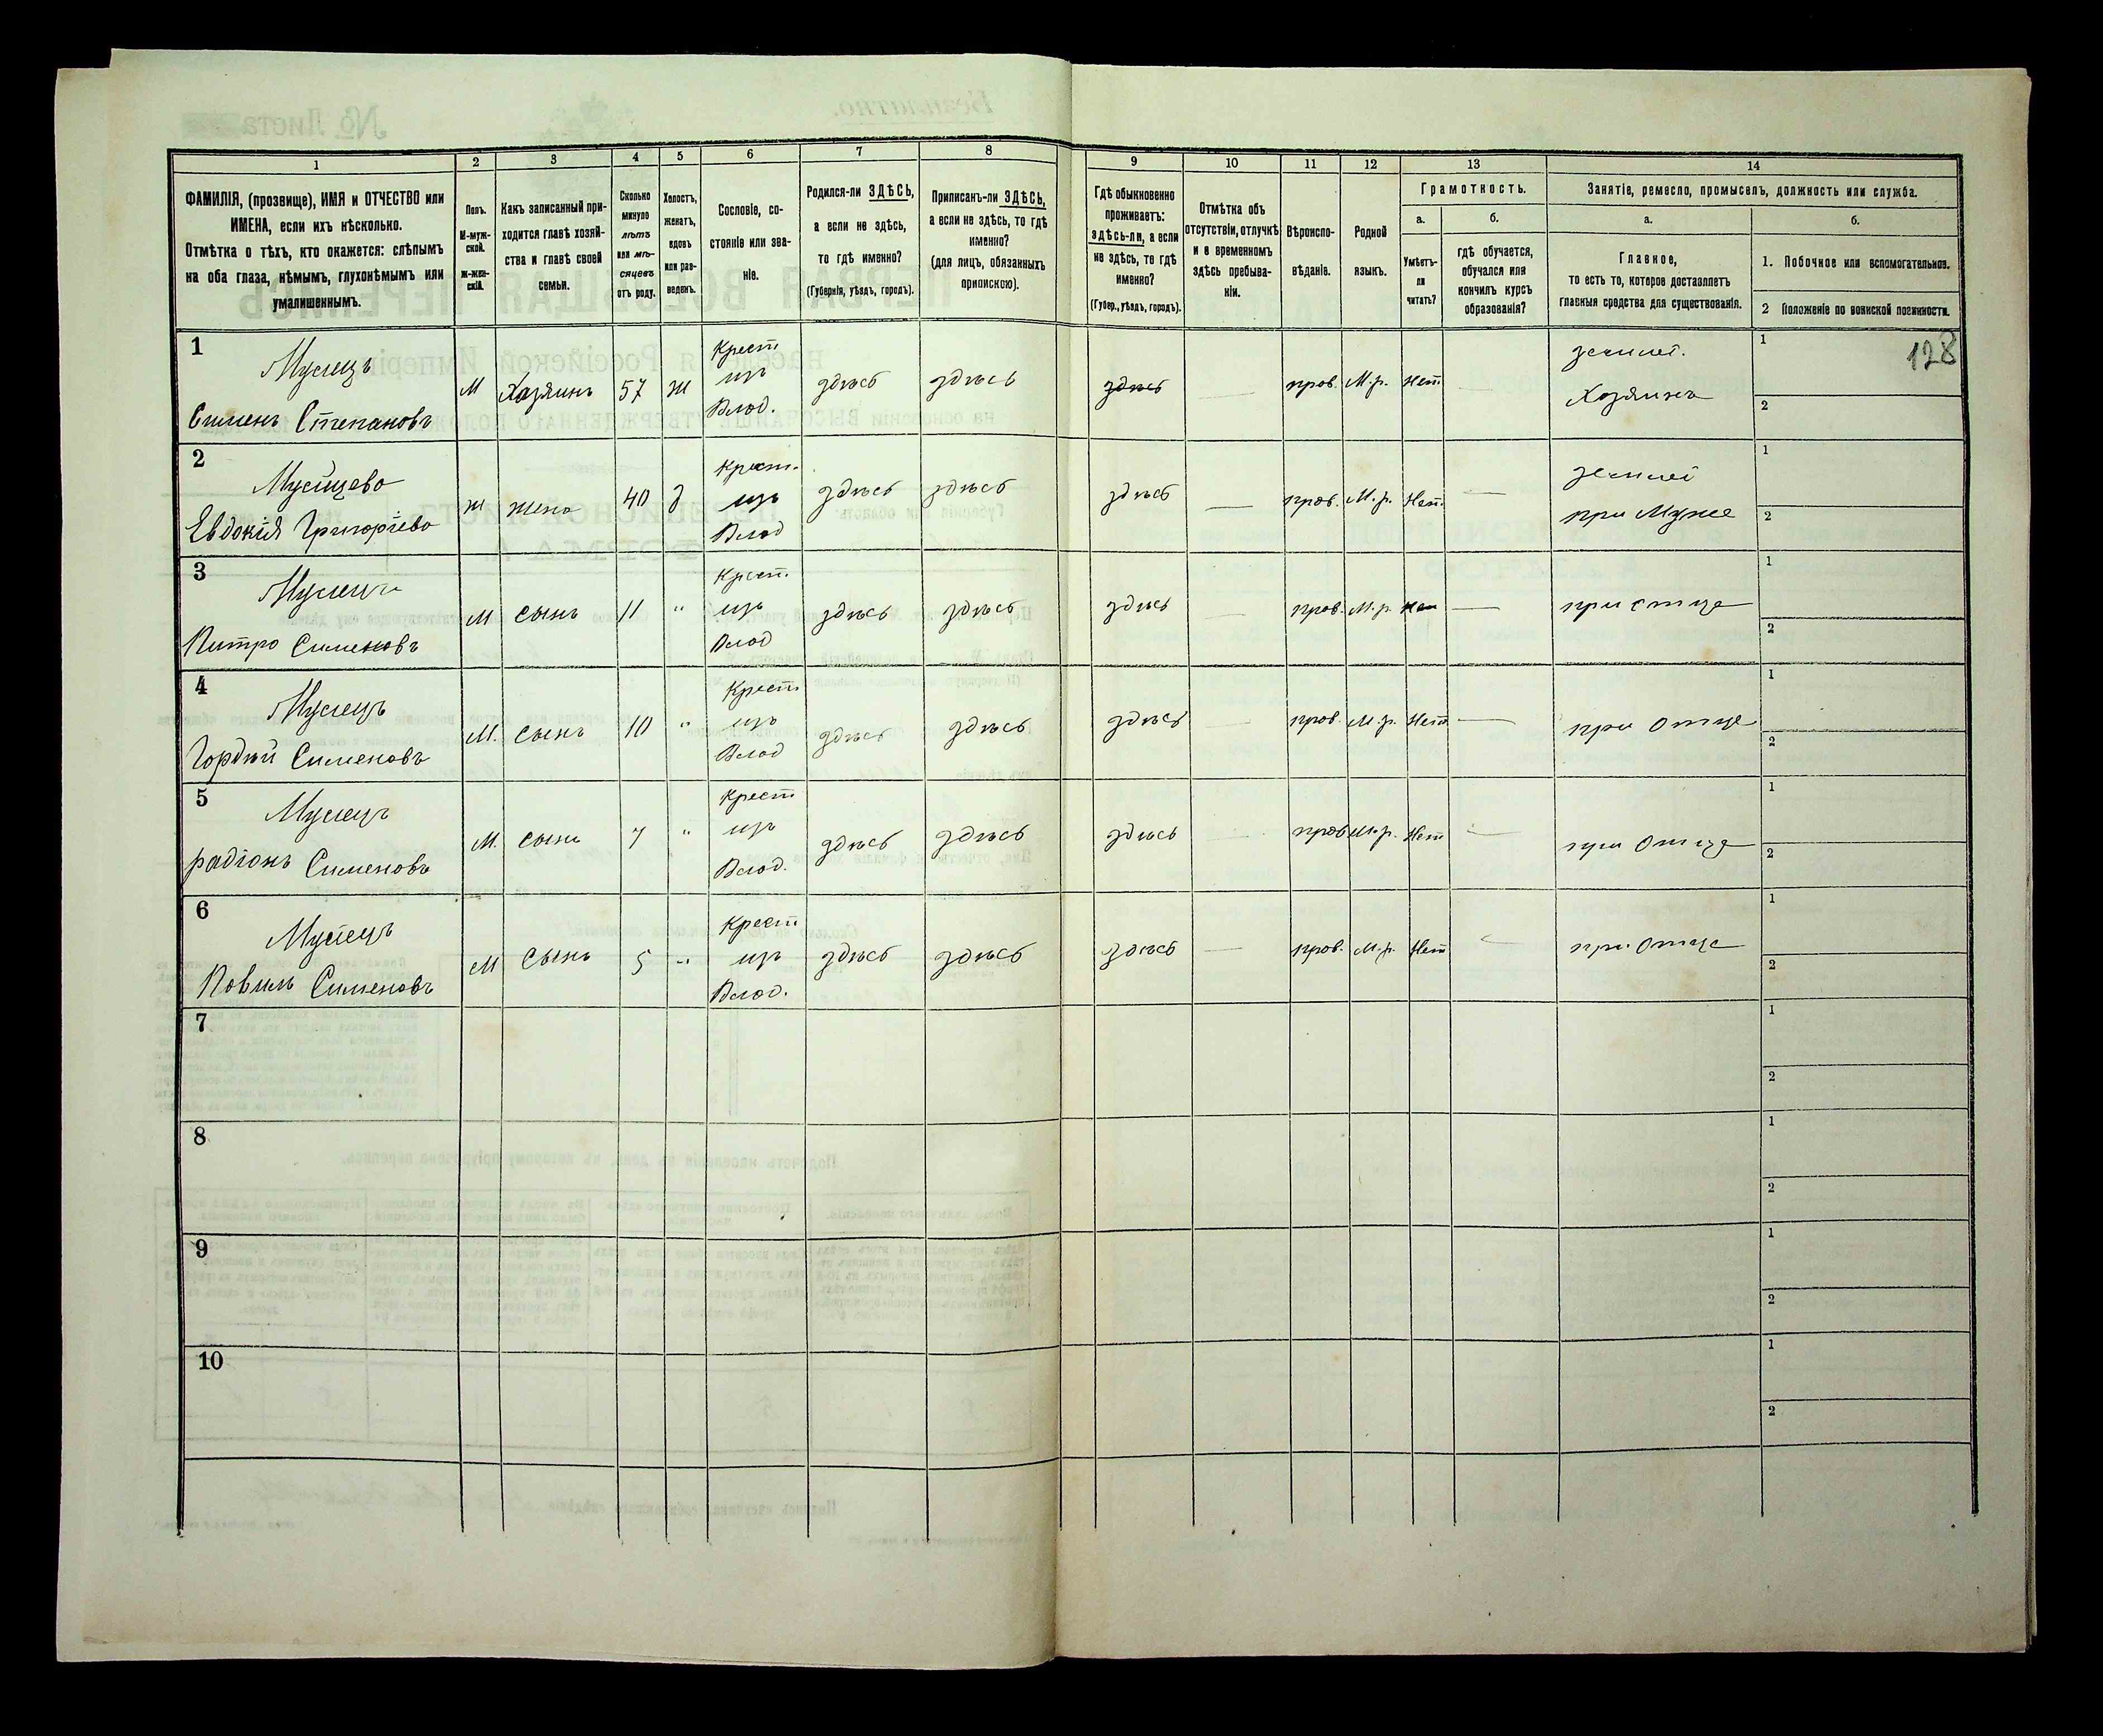 1 2 3 4 5 6 7 8 9 10 11 12 13 14
ФАМИЛІЯ, (прозвище), ИМЯ и ОТЧЕСТВО или
ИМЕНА, если ихъ нѣсколько.
Отмѣтка о тѣхъ, кто окажется: слѣпымъ
на оба глаза, нѣмымъ, глухонѣмымъ или
умалишеннымъ.
Полъ.
М-муж-
ской.
Ж-жен-
скій.
Какъ записанный при-
ходится главѣ хозяй-
ства и главѣ своей
семьи.
Сколько
минуло
лѣтъ
или мѣ-
сяцевъ
отъ роду.
Холостъ,
женатъ,
вдовъ
или раз-
веденъ.
Сословіе, со-
стояніе или зва-
ніе.
Родился-ли ЗДѢСЬ,
а если не здѣсь,
то гдѣ именно?
(Губернія, уѣздъ, городъ).
Приписанъ-ли ЗДѢСЬ,
а если не здѣсь, то гдѣ
именно?
(для лицъ, обязанныхъ
припискою).
Гдѣ обыкновенно
проживаетъ:
здѣсь-ли, а если
не здѣсь, то гдѣ
именно?
(Губер., уѣздъ, городъ).
Отмѣтка объ
отсутствіи, отлучкѣ
и о временномъ
здѣсь пребыва-
ніи.
Вѣроиспо-
вѣданіе.
Родной
языкъ.
Грамотность.
а. б.
Умѣетъ-
ли
читать?
гдѣ обучается,
обучался или
кончилъ курсъ
образованія?
Занятіе, ремесло, промыселъ, должность или служба.
а. б.
Главное,
то есть то, которое доставляетъ
главныя средства для существованія.
1. Побочное или вспомогательное.
2 Положеніе по воинской повинности.
128
1
Сименъ Степановъ
М Хазяинъ 57 ж
Крест
изъ
Влад.
здѣсь здѣсь здѣсь — прав. М.р. Нет —
Хазяинъ
1
2
2
Евдокія Григоріева
ж жена 40 з
Крест.
изъ
Влад
здѣсь здѣсь здѣсь — прав. М.р. Нет. —
при Муже
1
2
3
Питро Сименовъ
М сынъ 11 "
Крест.
изъ
Влад
здѣсь здѣсь здѣсь — прав. М.р. —
при отце
1
2
4
Гордѣй Сименовъ
М. сынъ 10 "
Крест
изъ
Влад
здѣсь здѣсь здѣсь — прав. М.р. Нет —
при отце
1
2
5
радіонъ Сименовъ
М. сынъ 7 "
Крест
изъ
Влад.
здѣсь здѣсь здѣсь — прав М.р. Нет —
при Отце
1
2
6
Повилъ Сименовъ
М сынъ 5 "
Крест
изъ
Влад.
здѣсь здѣсь здѣсь — прав. М.р. Нет —
при Отце
1
2
7
1
2
8
1
2
9
1
2
10
1
2